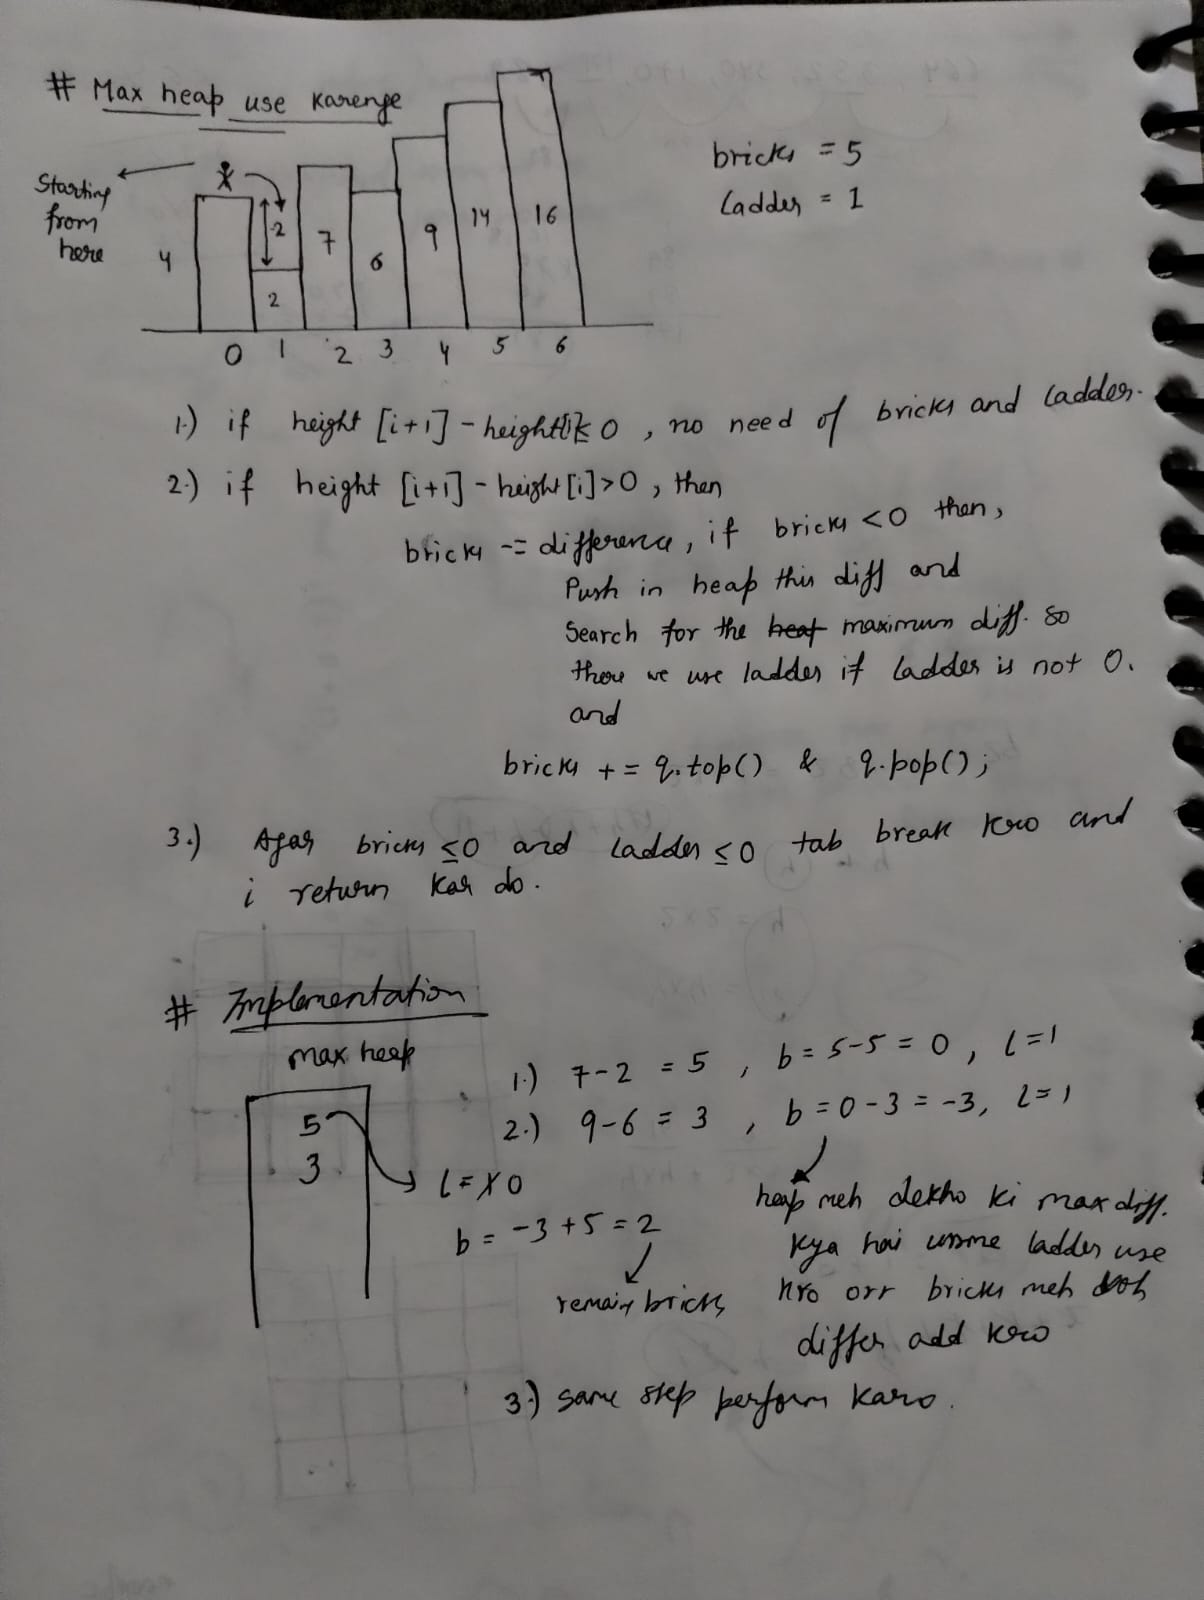 # Max heap use karenge
bricks = 5
ladder = 1
Starting
from
here
4
-2
2
7
6
9
14
16
0 1 2 3 4 5 6
1.) if height [i+1] - height[i] < 0 , no need of bricks and ladder.
2.) if height [i+1] - height [i] > 0 , then
bricks -= difference, if bricks < 0 then,
Push in heap this diff and
Search for the heap maximum diff. so
there we use ladder if ladder is not 0.
and
bricks += q.top() & q.pop();
3.) Agar bricks ≤ 0 and ladder ≤ 0 tab break kro and
i return kar do.
# Implementation
max heap
5
3
l = 1 0
b = -3 + 5 = 2
remain bricks
1.) 7-2 = 5 , b = 5-5 = 0 , l=1
2.) 9-6 = 3 , b = 0-3 = -3, l=1
heap meh dekho ki max diff.
kya hai usme ladder use
kro orr bricks meh voh
differ add kro
3.) same step perform karo.